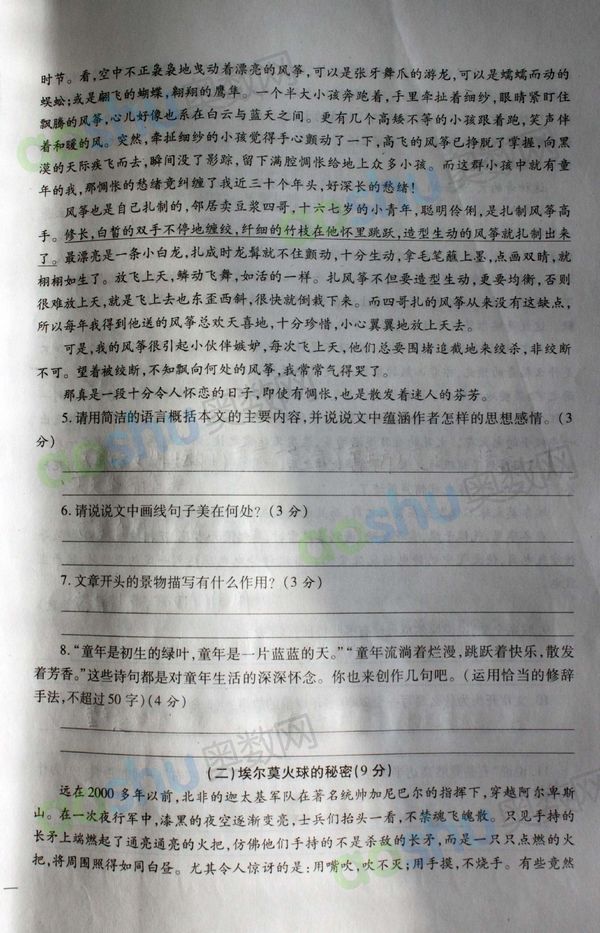 时节。看,空中不正袅袅地曳动着漂亮的风筝,可以是张牙舞爪的游龙,可以是蠕蠕而动的
蜈蚣;或是翩飞的蝴蝶,翱翔的鹰隼。一个半大小孩奔跑着,手里牵扯着细纱,眼睛紧盯住
飘腾的风筝,心儿好像也系在白云与蓝天之间。更有几个高矮不等的小孩跟着跑,笑声伴
着和暖的风。突然,牵扯细纱的小孩觉得手心颤动了一下,高飞的风筝已挣脱了掌握,向黑
漠的天际疾飞而去,瞬间没了影踪,留下满腔惆怅给地上众多小孩。而这群小孩中就有童
年的我,那惆怅的愁绪竟纠缠了我近三十个年头,好深长的愁绪!
风筝也是自己扎制的,邻居卖豆浆四哥,十六七岁的小青年,聪明伶俐,是扎制风筝高
手。修长,白皙的双手不停地缠绞,纤细的竹枝在他怀里跳跃,造型生动的风筝就扎制出来
了。最漂亮是一条小白龙,扎成时龙髯就不住颤动,十分生动,拿毛笔蘸上墨,点画双睛,就
栩栩如生了。放飞上天,鳞动飞舞,如活的一样。扎风筝不但要造型生动,更要均衡,否则
很难放飞上天,就是飞上去也东歪西斜,很快就倒栽下来。而四哥扎的风筝从来没有这缺点,
所以每年我得到他送的风筝总欢天喜地,十分珍惜,小心翼翼地放上天去。
可是,我的风筝很引起小伙伴嫉妒,每次飞上天,他们总要围堵追截地来绞杀,非绞断
不可。望着被绞断,不知飘向何处的风筝,我常常气得哭了。
那真是一段十分令人怀恋的日子,即使有惆怅,也是散发着迷人的芬芳。
5.请用简洁的语言概括本文的主要内容,并说说文中蕴涵作者怎样的思想感情。(3
分)
6.请说说文中画线句子美在何处?(3分)
7.文章开头的景物描写有什么作用?(3分)
8.“童年是初生的绿叶,童年是一片蓝蓝的天。”“童年流淌着烂漫,跳跃着快乐,散发
着芳香。”这些诗句都是对童年生活的深深怀念。你也来创作几句吧。(运用恰当的修辞
手法,不超过50字)(4分)
(二)埃尔莫火球的秘密(9分)
远在2000多年以前,北非的迦太基军队在著名统帅加尼巴尔的指挥下,穿越阿尔卑斯
山。在一次夜行军中,漆黑的夜空逐渐变亮,士兵们抬头一看,不禁魂飞魄散。只见手持的
长矛上端燃起了通亮通亮的火把,仿佛他们手持的不是杀敌的长矛,而是一只只点燃的火
把,将周围照得如同白昼。尤其令人惊讶的是:用嘴吹,吹不灭;用手摸,不烧手。有些竟然